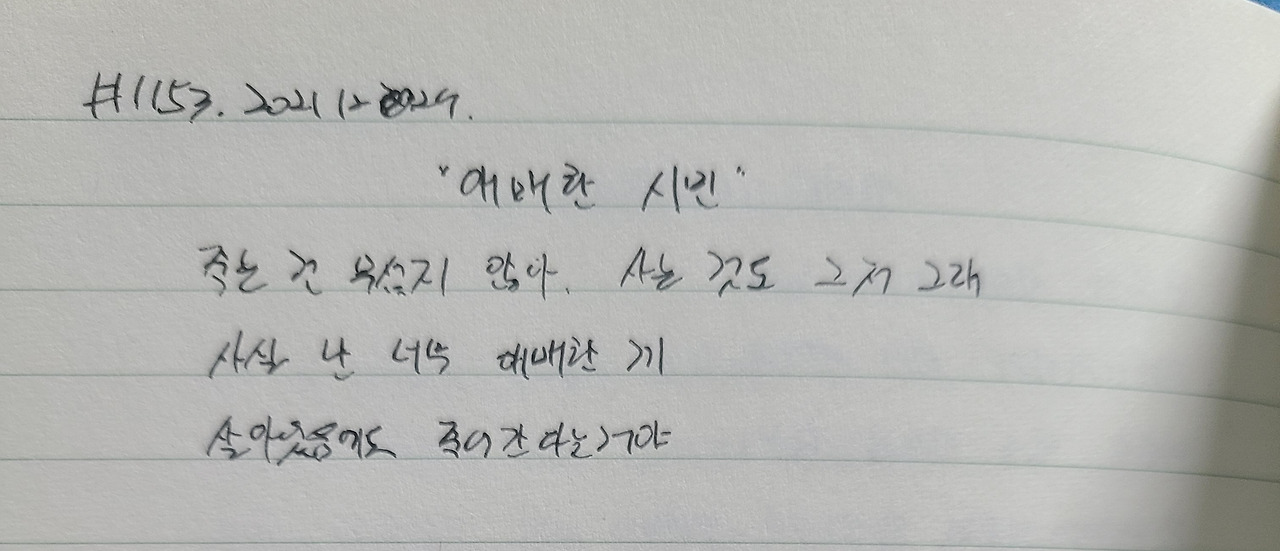 #1153. 2021 12 2024.
"애매한 시민"
죽는 건 무섭지 않아. 사는 것도 그저 그래
사실 난 너무 애매한 게
살아있음에도 죽어간다는거야